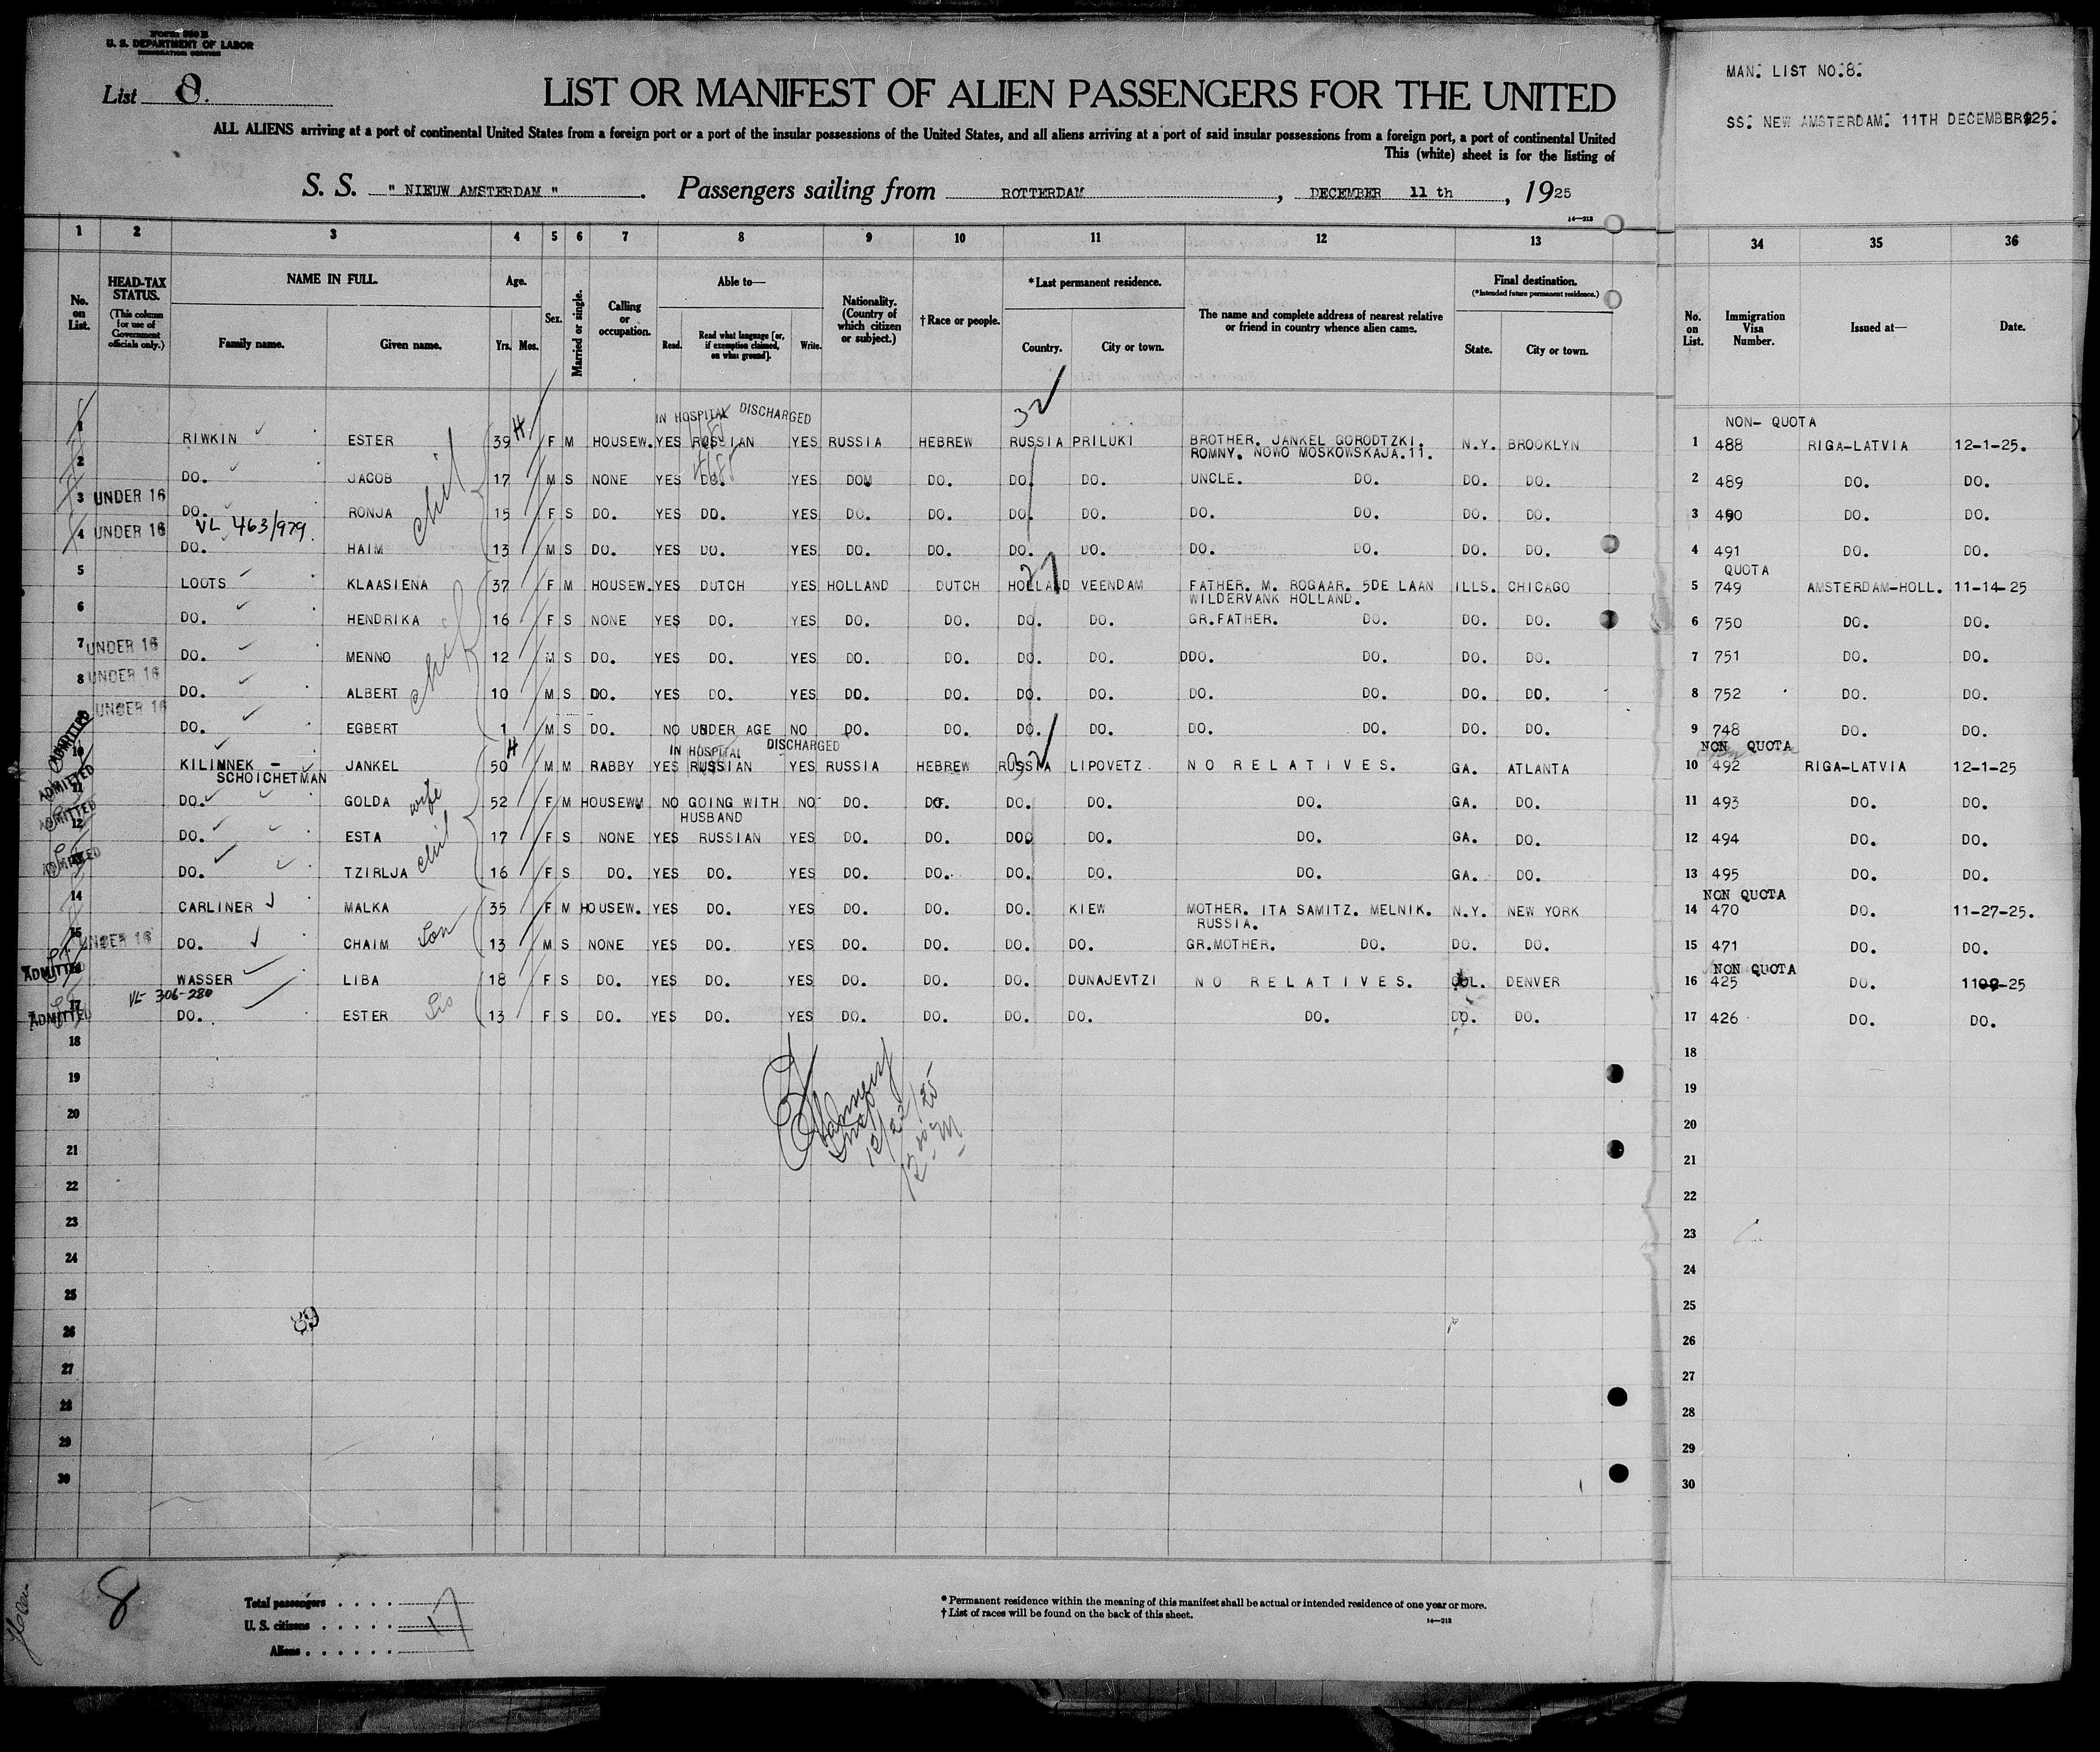 Form 500 B
U. S. DEPARTMENT OF LABOR
IMMIGRATION SERVICE
List 8.
LIST OR MANIFEST OF ALIEN PASSENGERS FOR THE UNITED
ALL ALIENS arriving at a port of continental United States from a foreign port or a port of the insular possessions of the United States, and all aliens arriving at a port of said insular possessions from a foreign port, a port of continental United
This (white) sheet is for the listing of
S. S. " NIEUW AMSTERDAM " . Passengers sailing from ROTTERDAM , DECEMBER 11 th , 1925
14—213
MAN: LIST NO:8:
SS: NEW AMSTERDAM: 11TH DECEMBER925:
1 2 3 4 5 6 7 8 9 10 11 12 13 34 35 36
No. on List.
HEAD-TAX STATUS.
(This column for use of Government officials only.)
NAME IN FULL.
Family name. Given name.
Age.
Yrs. Mos.
Sex.
Married or single.
Calling or occupation.
Able to—
Read. Read what language [or, if exemption claimed, on what ground]. Write.
Nationality. (Country of which citizen or subject.)
†Race or people.
*Last permanent residence.
Country. City or town.
The name and complete address of nearest relative or friend in country whence alien came.
Final destination.
(*Intended future permanent residence.)
State. City or town.
No. on List.
Immigration Visa Number.
Issued at—
Date.
IN HOSPITAL DISCHARGED
32
NON- QUOTA
1 RIWKIN ESTER 39 H F M HOUSEW. YES RUSSIAN YES RUSSIA HEBREW RUSSIA PRILUKI BROTHER. JANKEL GORODTZKI. N.Y. BROOKLYN 1 488 RIGA-LATVIA 12-1-25.
ROMNY. NOWO MOSKOWSKAJA.11.
2 DO. JACOB 17 M S NONE YES DO. YES DOM DO. DO. DO. UNCLE. DO. DO. DO. 2 489 DO. DO.
chil
3 UNDER 16 DO. RONJA 15 F S DO. YES DO. YES DO. DO. DO. DO. DO. DO. DO. DO. 3 490 DO. DO.
VL 463/979.
4 UNDER 16 DO. HAIM 13 M S DO. YES DO. YES DO. DO. DO. DO. DO. DO. DO. DO. 4 491 DO. DO.
QUOTA
5 LOOTS KLAASIENA 37 F M HOUSEW. YES DUTCH YES HOLLAND DUTCH HOLLAND VEENDAM FATHER. M. ROGAAR. 5DE LAAN ILLS. CHICAGO 5 749 AMSTERDAM-HOLL. 11-14-25
WILDERVANK HOLLAND.
6 DO. HENDRIKA 16 F S NONE YES DO. YES DO. DO. DO. DO. GR.FATHER. DO. DO. DO. 6 750 DO. DO.
7 UNDER 16 DO. MENNO 12 M S DO. YES DO. YES DO. DO. DO. DO. DDO. DO. DO. DO. 7 751 DO. DO.
8 UNDER 16 DO. ALBERT 10 M S DO. YES DO. YES DO. DO. DO. DO. DO. DO. DO. DO. 8 752 DO. DO.
UNDER 16 DO. EGBERT 1 M S DO. NO UNDER AGE NO DO. DO. DO. DO. DO. DO. DO. DO. 9 748 DO. DO.
IN HOSPITAL DISCHARGED
NON QUOTA
ADMITTED 10 KILIMNEK - JANKEL 50 H M M RABBY YES RUSSIAN YES RUSSIA HEBREW RUSSIA LIPOVETZ NO RELATIVES. GA. ATLANTA 10 492 RIGA-LATVIA 12-1-25
SCHOICHETMAN
ADMITTED 11 DO. GOLDA wife 52 F M HOUSEWM NO GOING WITH NO DO. DO. DO. DO. DO. GA. DO. 11 493 DO. DO.
HUSBAND
ADMITTED 12 DO. ESTA chil 17 F S NONE YES RUSSIAN YES DO. DO. DOO DO. DO. GA. DO. 12 494 DO. DO.
ADMITTED DO. TZIRLJA 16 F S DO. YES DO. YES DO. DO. DO. DO. DO. GA. DO. 13 495 DO. DO.
NON QUOTA
14 CARLINER MALKA 35 F M HOUSEW. YES DO. YES DO. DO. DO. KIEW MOTHER. ITA SAMITZ. MELNIK. N.Y. NEW YORK 14 470 DO. 11-27-25.
RUSSIA.
15 UNDER 16 DO. CHAIM Son 13 M S NONE YES DO. YES DO. DO. DO. DO. GR.MOTHER. DO. DO. DO. 15 471 DO. DO.
NON QUOTA
ADMITTED WASSER LIBA 18 F S DO. YES DO. YES DO. DO. DO. DUNAJEVTZI NO RELATIVES. COL. DENVER 16 425 DO. 1109-25
VL 306-280
17 ADMITTED DO. ESTER Sis 13 F S DO. YES DO. YES DO. DO. DO. DO. DO. DO. DO. 17 426 DO. DO.
18 18
19 19
20 20
21 21
22 22
23 23
24 24
25 25
26 26
27 27
28 28
29 29
30 30
12/22/25
89
8
Total passengers . . . .
U. S. citizens . . . . . 17
Aliens . . . . . .
* Permanent residence within the meaning of this manifest shall be actual or intended residence of one year or more.
† List of races will be found on the back of this sheet.
14—213